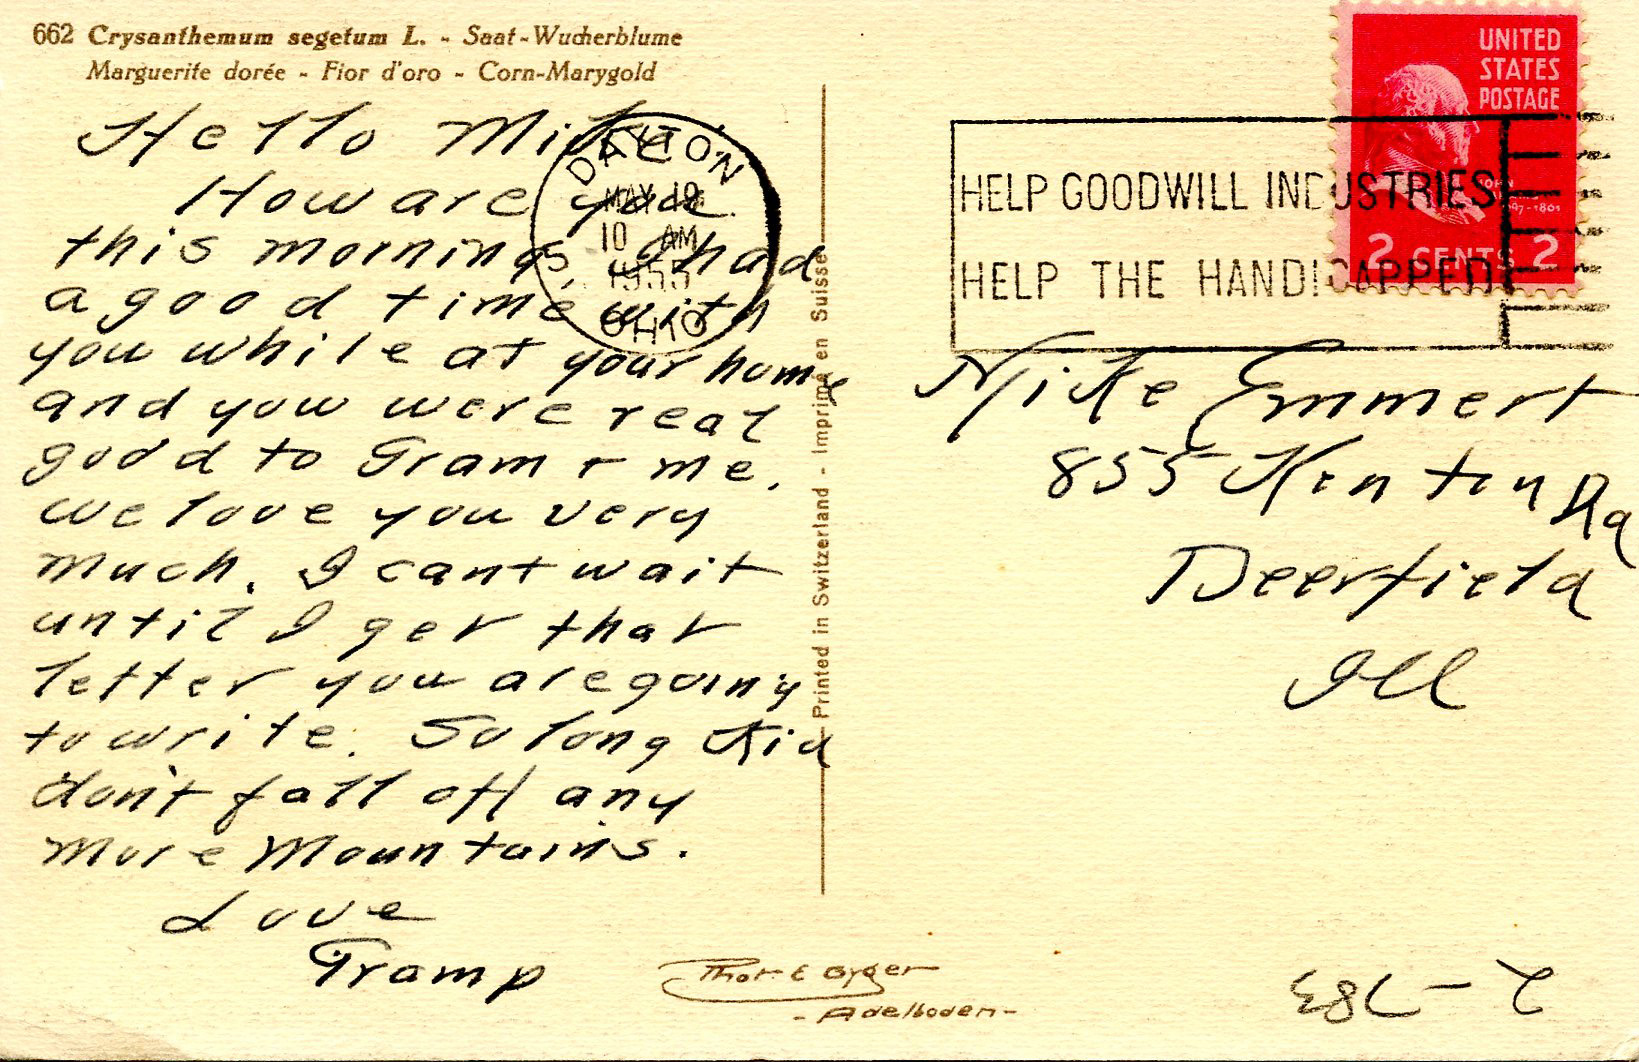 662 Crysanthemum segetum L. - Saat-Wucherblume
Marguerite dorée - Fior d'oro - Corn-Marygold
Hello Mike.
How are you
this morning, I had
a good time with
you while at your home
and you were real
good to Gram + me.
we love you very
much. I cant wait
until I get that
letter you are going
to write. So long Kid
don't fall off any
more Mountains.
Love
Gramp
DAYTON
MAY 19
10 AM
1955
OHIO
Printed in Switzerland - Imprimé en Suisse
HELP GOODWILL INDUSTRIES
HELP THE HANDICAPPED
UNITED
STATES
POSTAGE
JOHN
2 CENTS 2
Mike Emmert
855 Kenton Rd
Deerfield
Ill
Phot. E Gyger
- Adelboden -
2-783